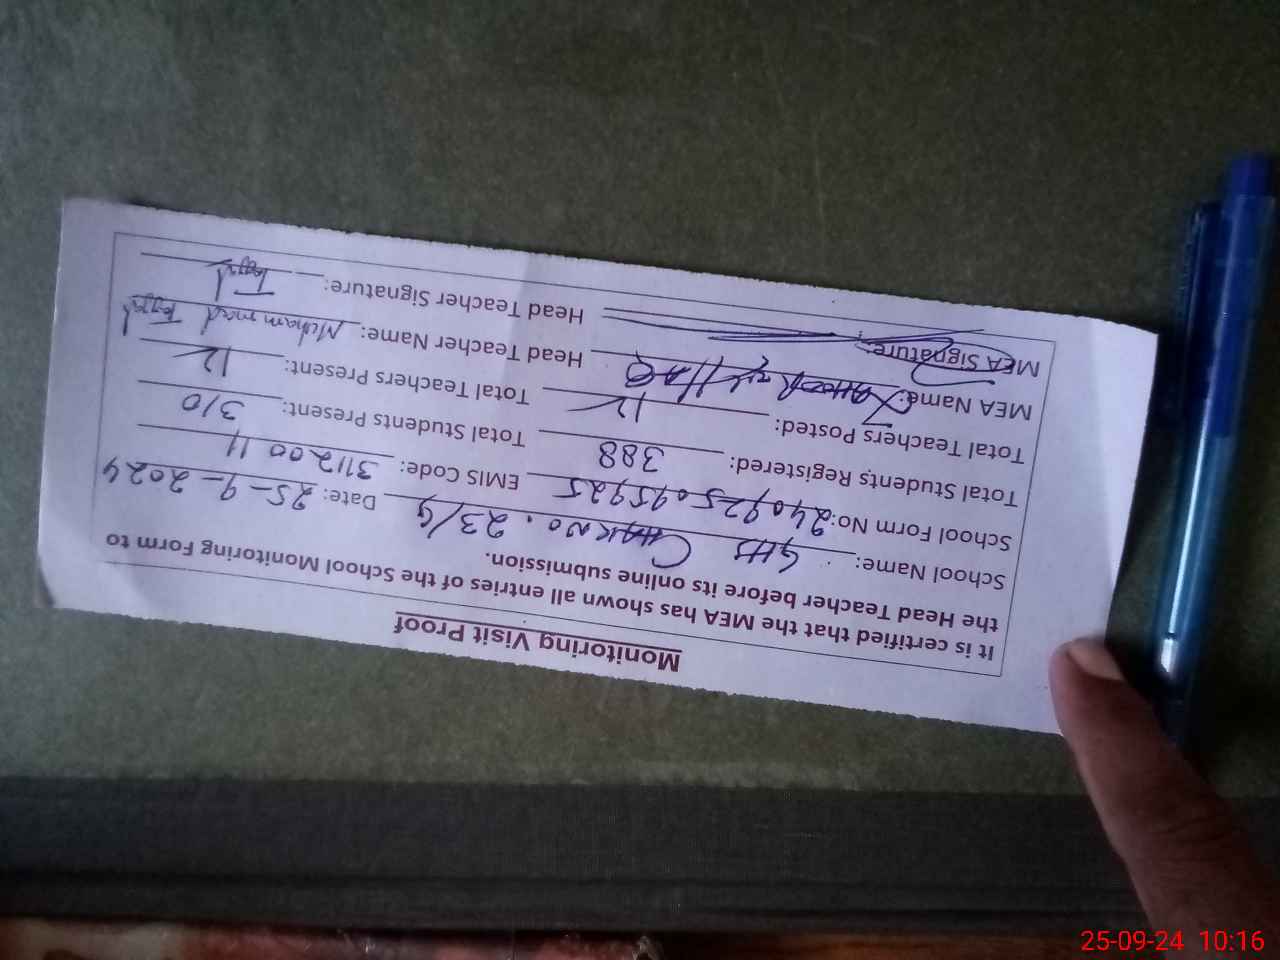 Monitoring Visit Proof
It is certified that the MEA has shown all entries of the School Monitoring Form to
the Head Teacher before its online submission.
School Name: GHS CHAK NO. 23/G Date: 25-9-2024
School Form No: 240925095925 EMIS Code: 31120011
Total Students Registered: 388 Total Students Present: 310
Total Teachers Posted: 12 Total Teachers Present: 12
MEA Name: Head Teacher Name: Muhammad
MEA Signature: Head Teacher Signature:
25-09-24 10:16